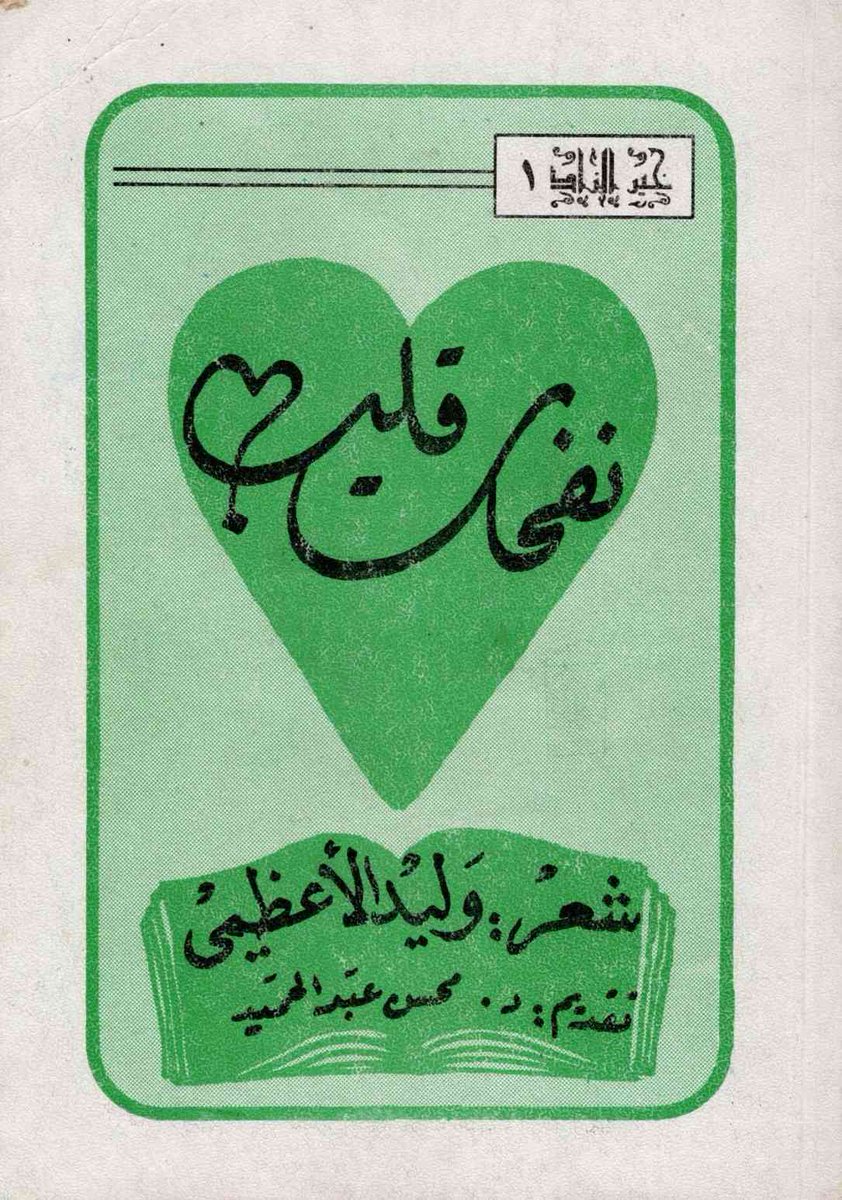 خير الزاد ١
نفحات قلب
شعر: وَليْد الأعظميْ
تقديم: د. محسن عبد الحميد